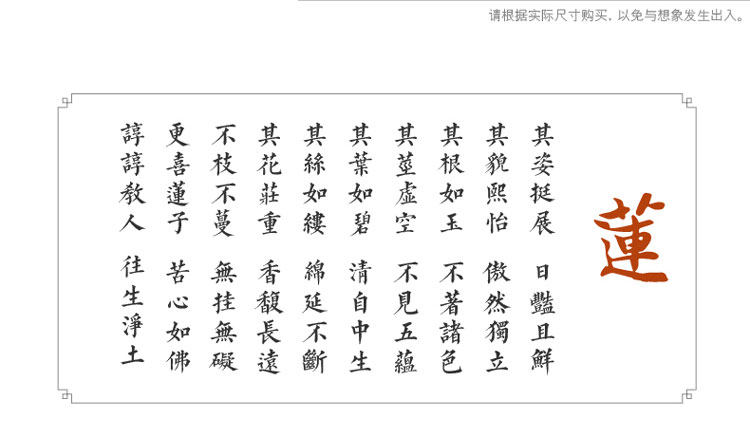 请根据实际尺寸购买，以免与想象发生出入。
蓮
其姿挺展 日豔且鮮
其貌熙怡 傲然獨立
其根如玉 不著諸色
其莖虛空 不見五蘊
其葉如碧 清自中生
其絲如縷 綿延不斷
其花莊重 香馥長遠
不枝不蔓 無挂無礙
更喜蓮子 苦心如佛
諄諄教人 往生淨土